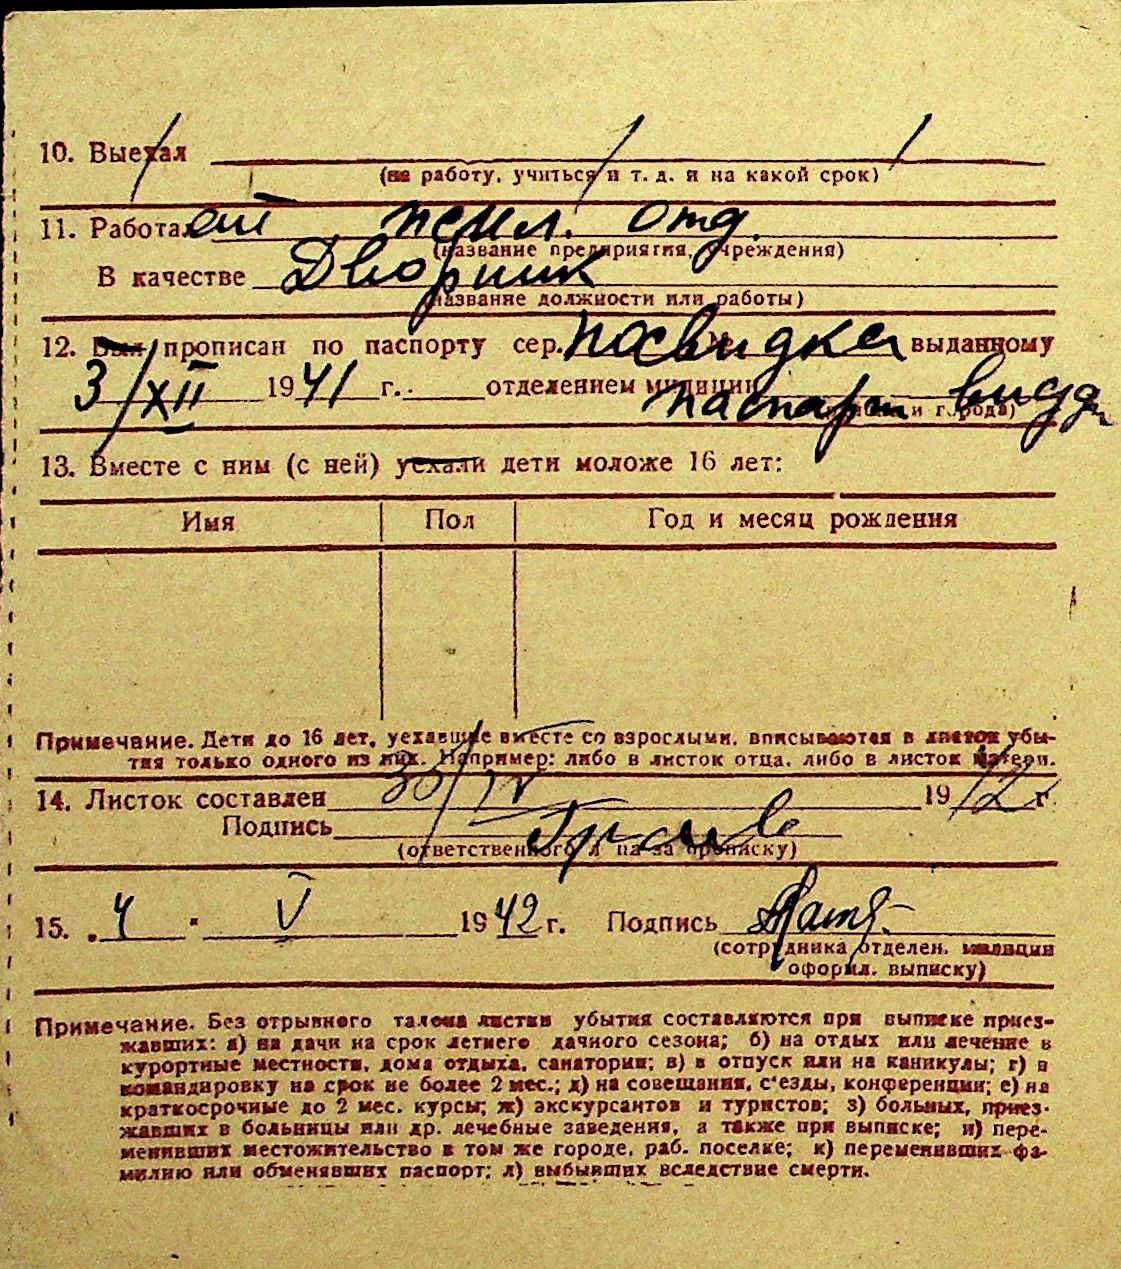 10. Выехал
(на работу, учиться и т. д. и на какой срок)
11. Работал жил. отд.
(название предприятия, учреждения)
В качестве Дворник
(название должности или работы)
12. Был прописан по паспорту сер. посвидка выданному
3/XII 1941 г. отделением милиции паспорт видд
и города)
13. Вместе с ним (с ней) уехали дети моложе 16 лет:
Имя Пол Год и месяц рождения
Примечание. Дети до 16 лет, уехавшие вместе со взрослыми, вписываются в листок убы-
тия только одного из них. Например: либо в листок отца, либо в листок матери.
14. Листок составлен 30/IV 1942 г.
Подпись
(ответственного л па за прописку)
15. 4 " V 1942 г. Подпись
(сотрудника отделен. милиции
оформл. выписку)
Примечание. Без отрывного талона листки убытия составляются при выписке приез-
жавших: а) на дачи на срок летнего дачного сезона; б) на отдых или лечение в
курортные местности, дома отдыха, санатории; в) в отпуск или на каникулы; г) в
командировку на срок не более 2 мес.; д) на совещания, с'езды, конференции; е) на
краткосрочные до 2 мес. курсы; ж) экскурсантов и туристов; з) больных, приез-
жавших в больницы или др. лечебные заведения, а также при выписке; и) пере-
менивших местожительство в том же городе, раб. поселке; к) переменивших фа-
милию или обменявших паспорт; л) выбывших вследствие смерти.